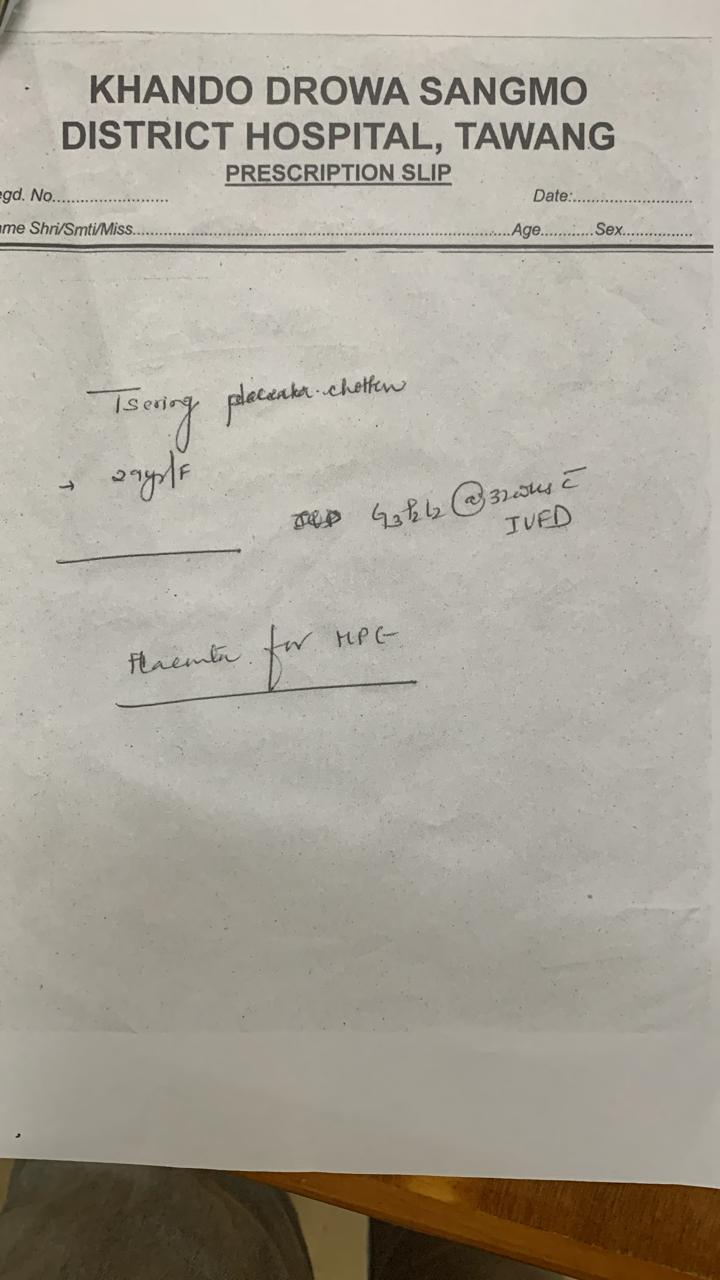 KHANDO DROWA SANGMO
DISTRICT HOSPITAL, TAWANG
PRESCRIPTION SLIP
egd. No........................ Date:.........................
ame Shri/Smti/Miss................................................................................Age...........Sex...............
Tsering
→ 29yr/F
G3P2L2 @ 32wks c̄
IUFD
for HPE